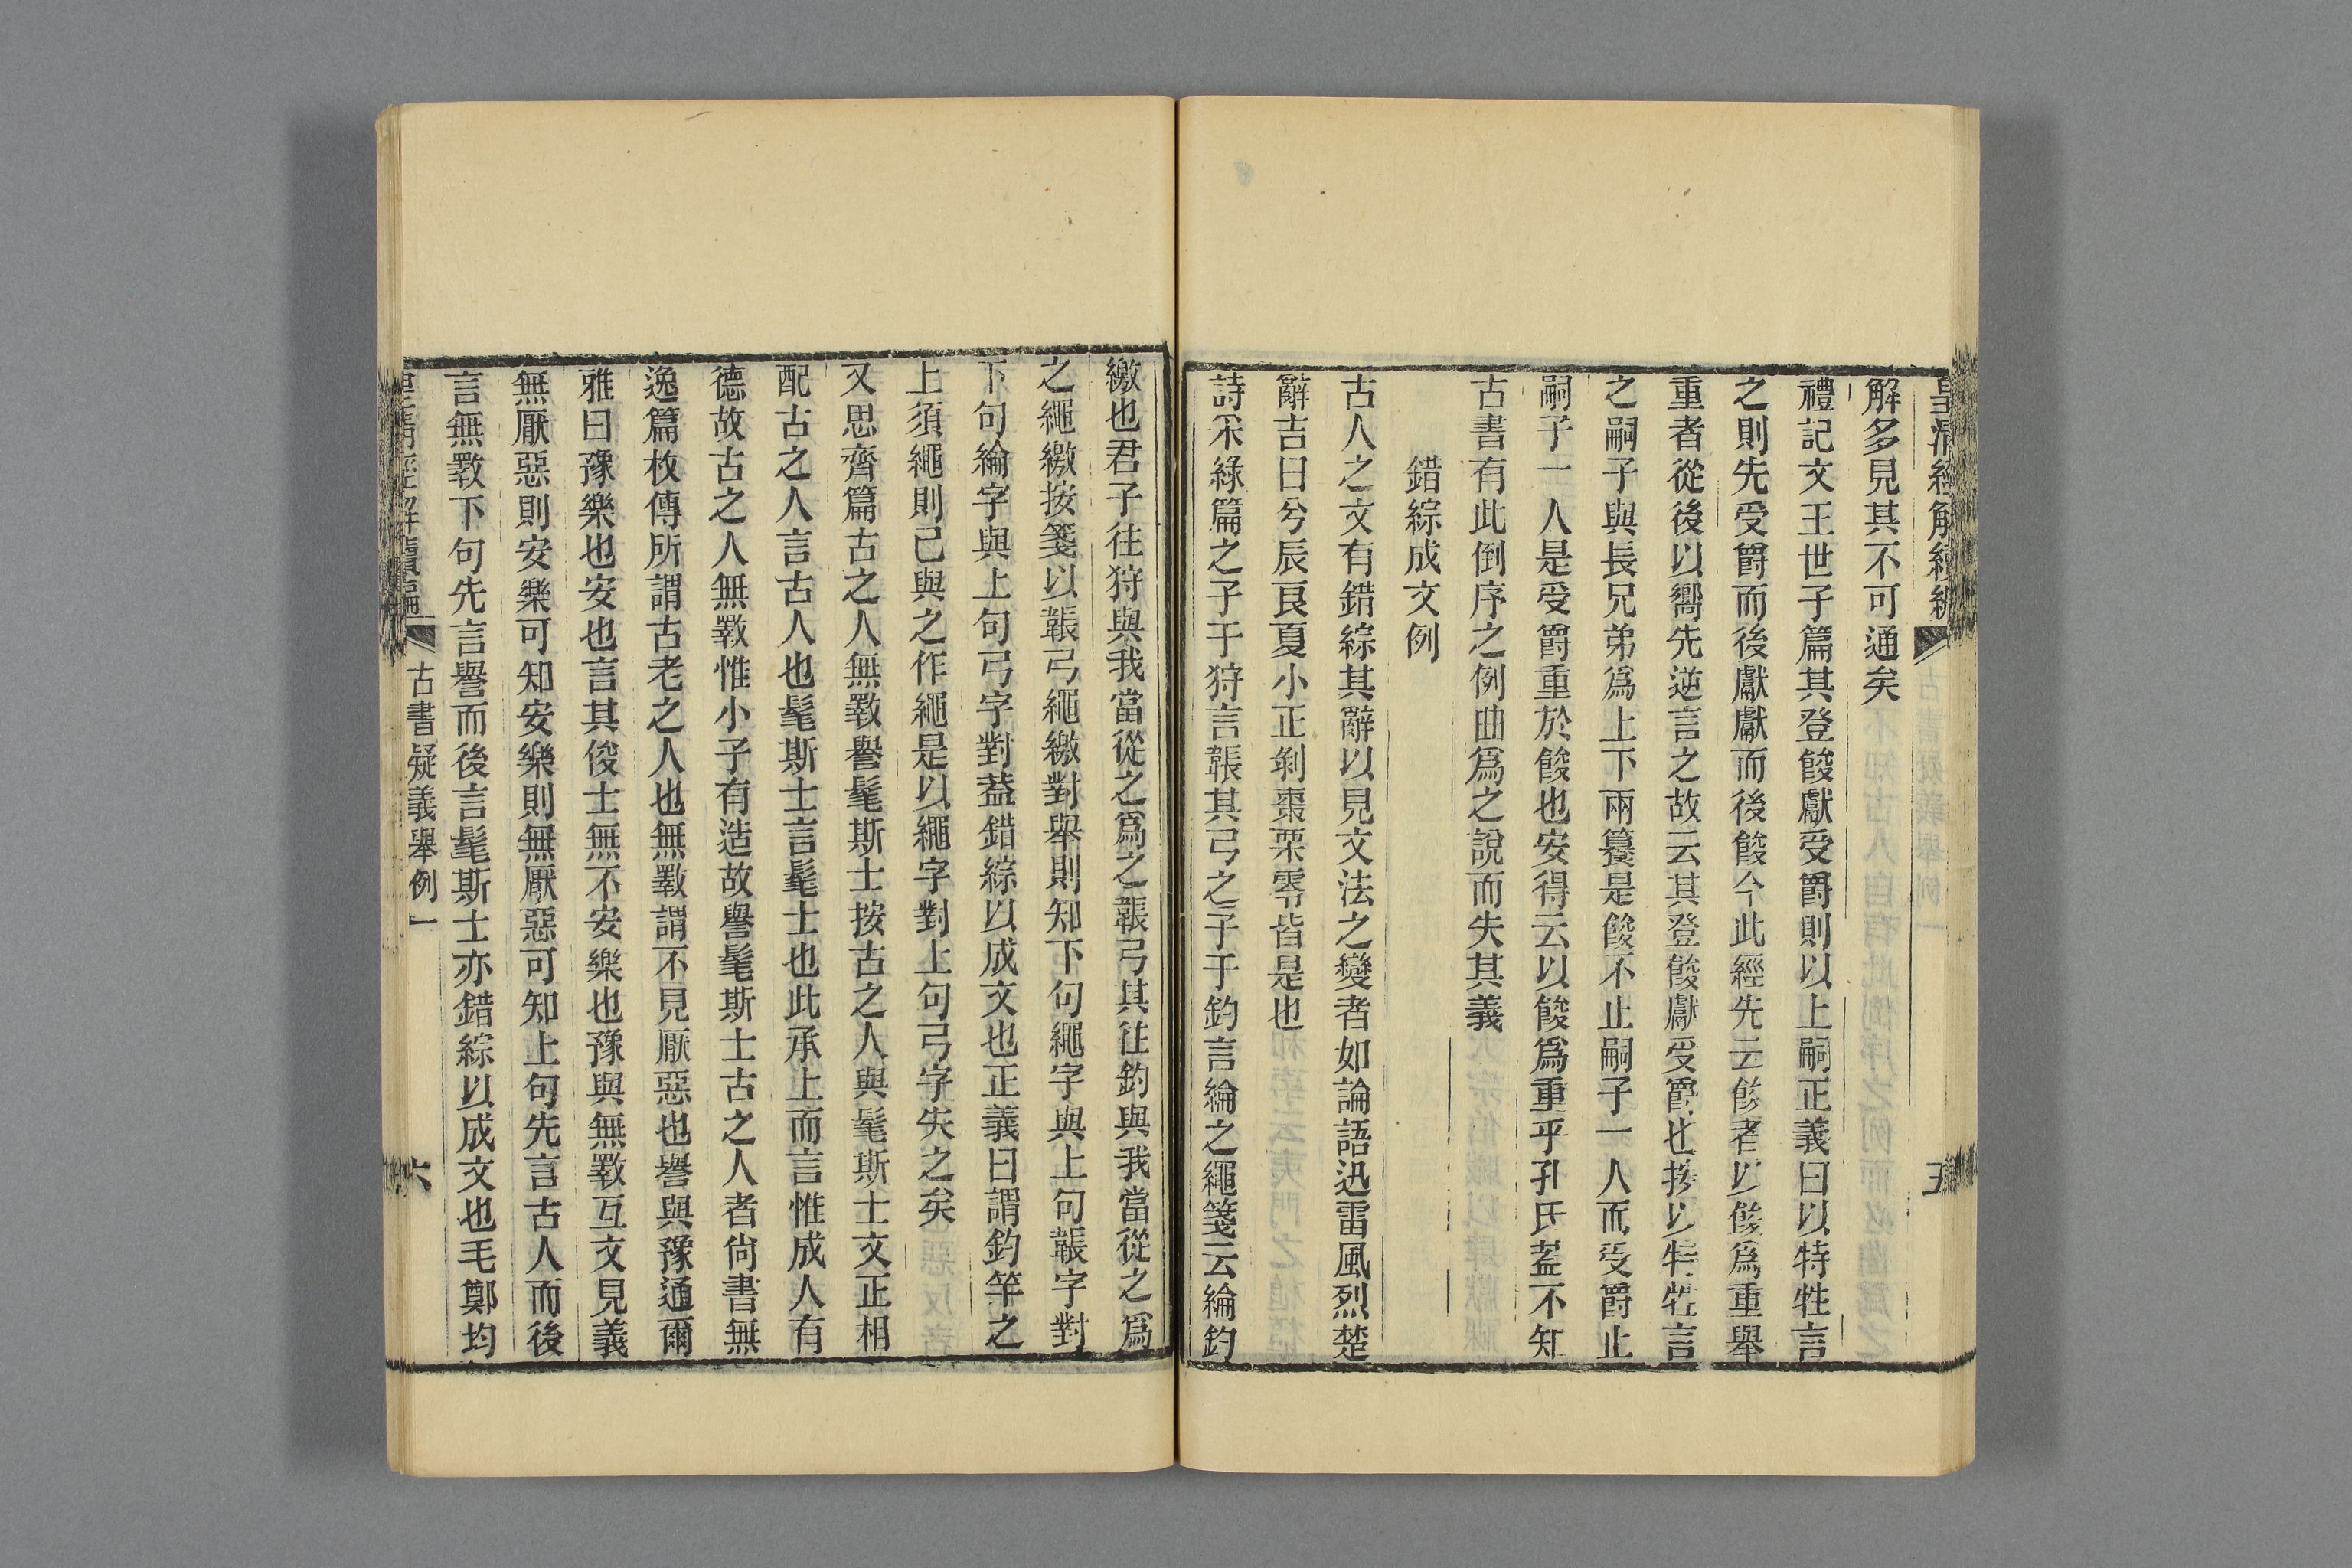 皇清經解續編
古書疑義舉例一
五
解多見其不可通矣
禮記文王世子篇其登餕獻受爵則以上嗣正義曰以特牲言
之則先受爵而後獻獻而後餕今此經先云餕者以餕爲重舉
重者從後以嚮先逆言之故云其登餕獻受爵也按以特牲言
之嗣子與長兄弟爲上下兩籑是餕不止嗣子一人而受爵止
嗣子一人是受爵重於餕也安得云以餕爲重乎孔氏葢不知
古書有此倒序之例曲爲之說而失其義
錯綜成文例
古人之文有錯綜其辭以見文法之變者如論語迅雷風烈楚
辭吉日兮辰良夏小正剝棗栗零皆是也
詩采綠篇之子于狩言韔其弓之子于釣言綸之繩箋云綸釣
繳也君子往狩與我當從之爲之韔弓其往釣與我當從之爲
之繩繳按箋以韔弓繩繳對舉則知下句繩字與上句韔字對
下句綸字與上句弓字對葢錯綜以成文也正義曰謂釣竿之
上須繩則己與之作繩是以繩字對上句弓字失之矣
又思齊篇古之人無斁譽髦斯士按古之人與髦斯士文正相
配古之人言古人也髦斯士言髦士也此承上而言惟成人有
德故古之人無斁惟小子有造故譽髦斯士古之人者尙書無
逸篇枚傳所謂古老之人也無斁謂不見厭惡也譽與豫通爾
雅曰豫樂也安也言其俊士無不安樂也豫與無斁互文見義
無厭惡則安樂可知安樂則無厭惡可知上句先言古人而後
言無斁下句先言譽而後言髦斯士亦錯綜以成文也毛鄭均
皇清經解續編
古書疑義舉例一
六